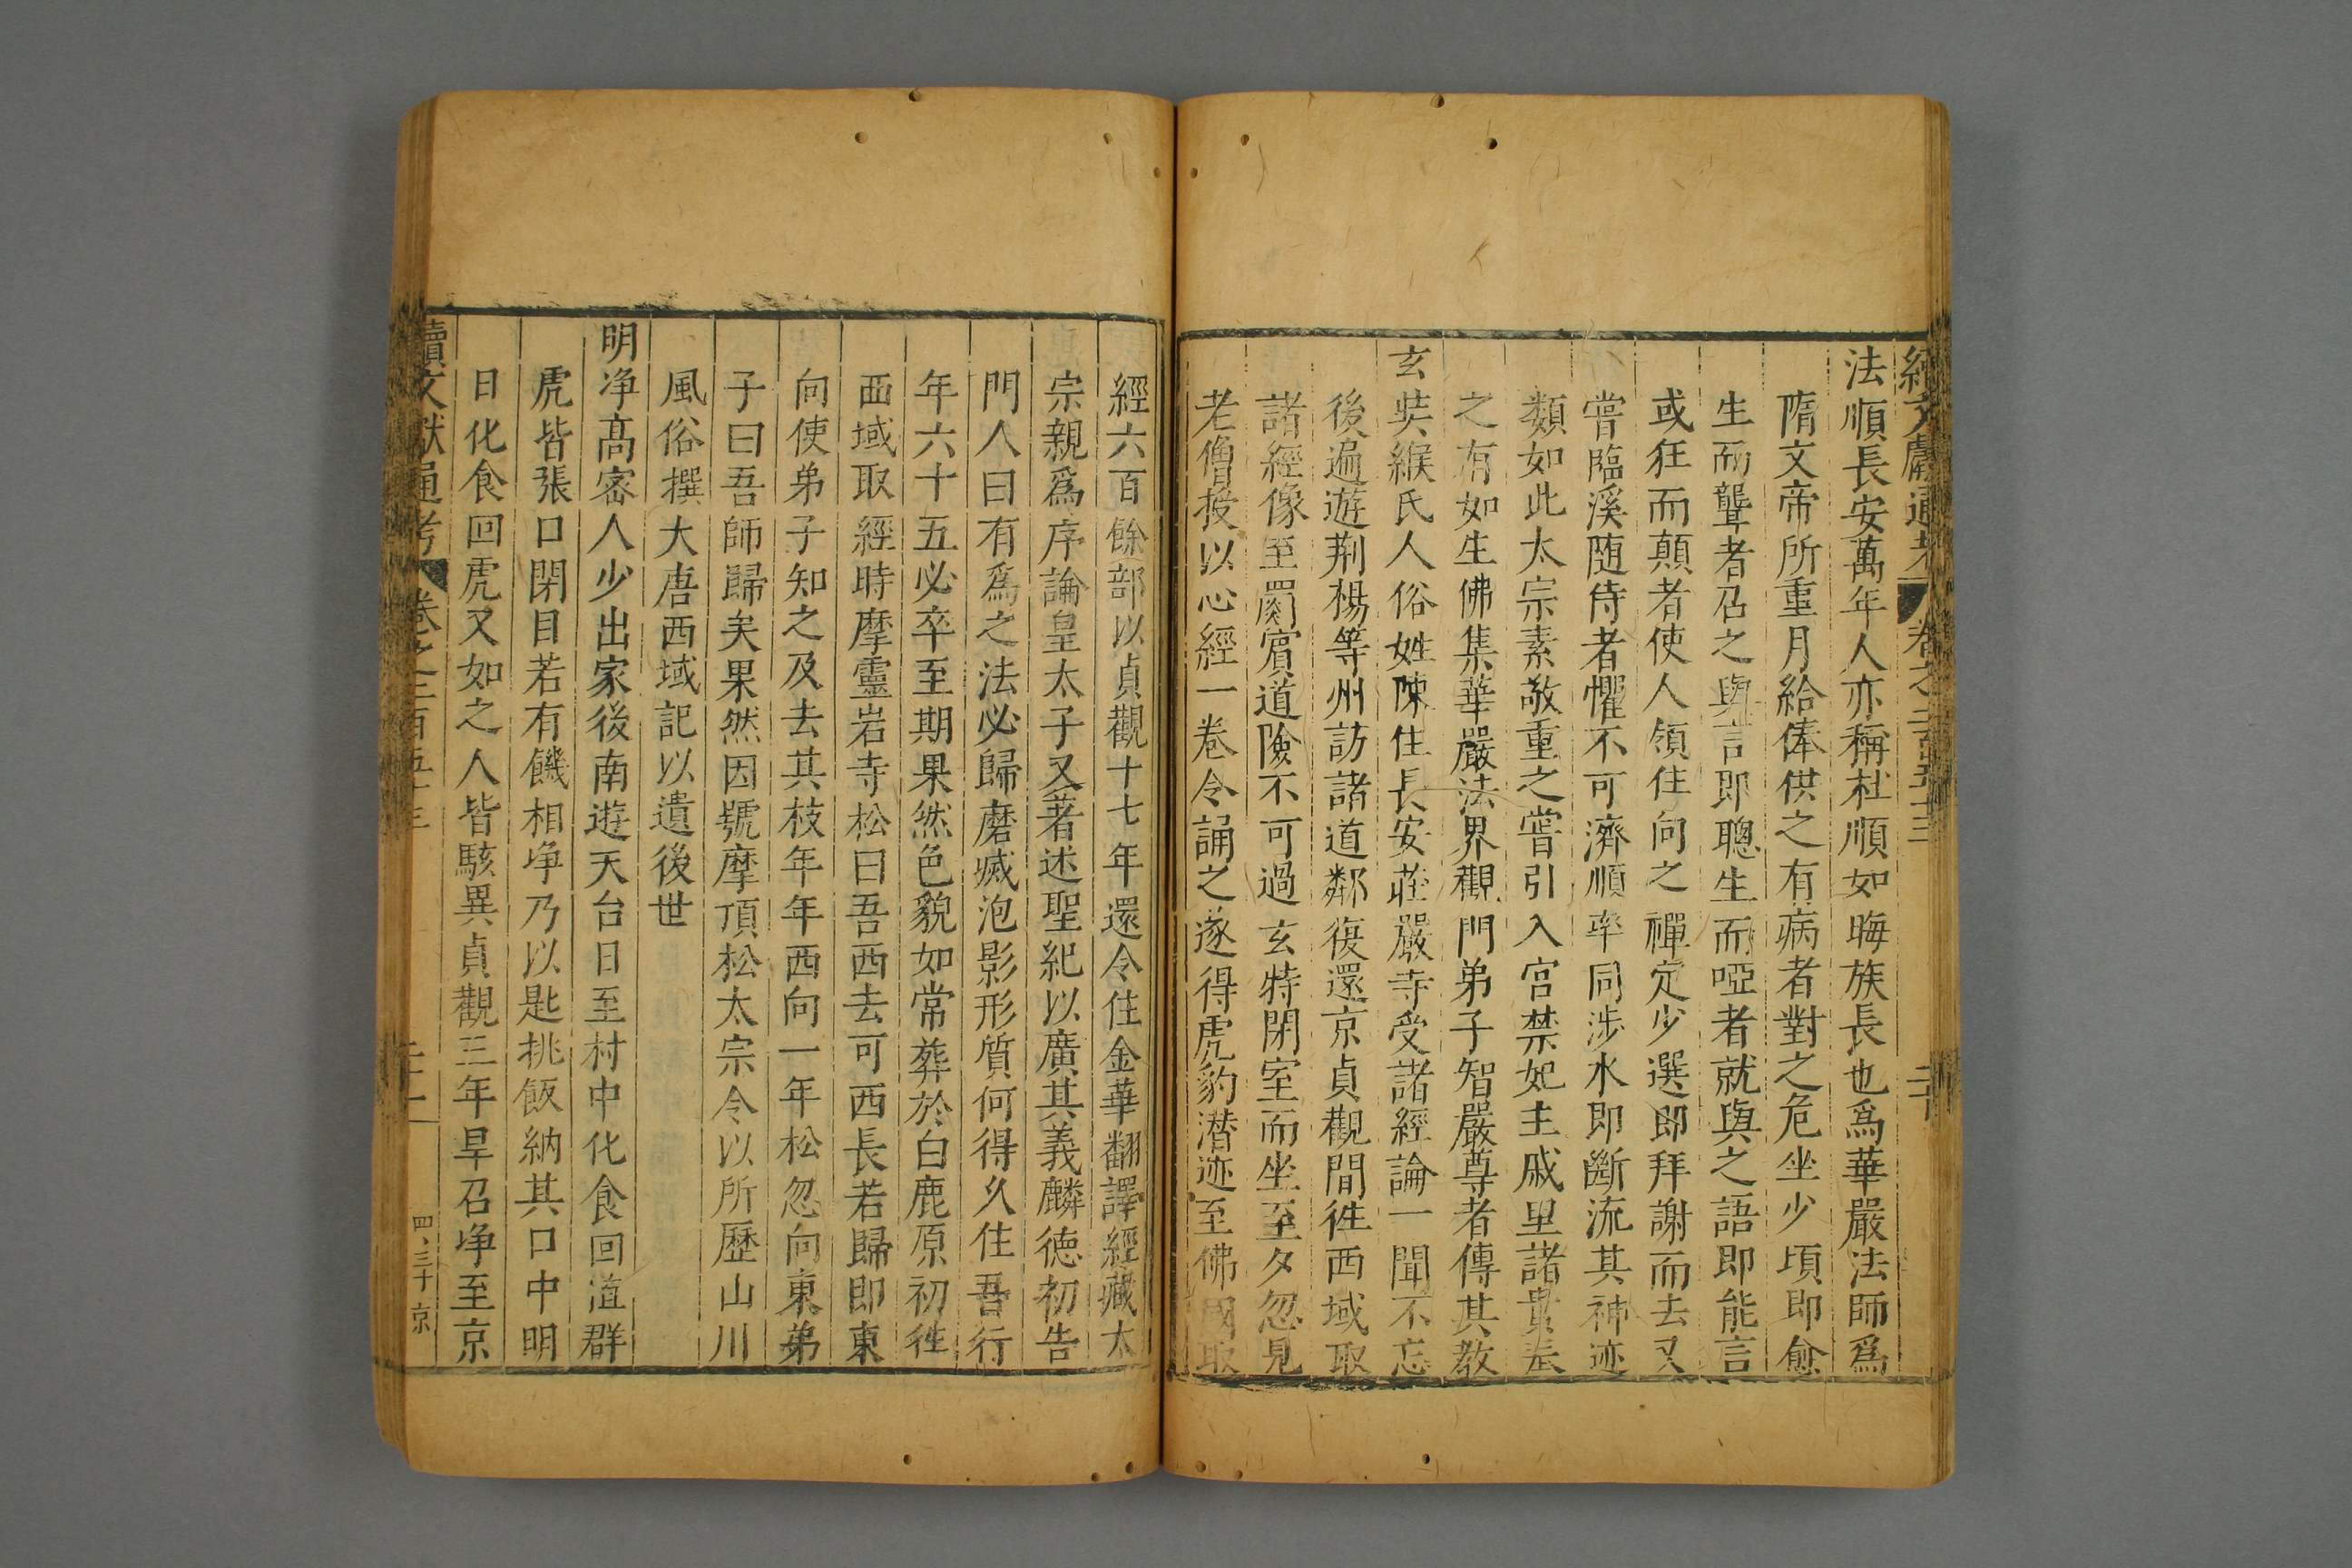 續文獻通考 卷之二百五十三 二十
法順長安萬年人亦稱杜順如晦族長也爲華嚴法師爲
隋文帝所重月給俸供之有病者對之危坐少頃即愈
生而聾者召之與言即聰生而啞者就與之語即能言
或狂而顛者使人領住向之禪定少選即拜謝而去又
嘗臨溪随侍者懼不可濟順率同涉水即斷流其神迹
類如此太宗素敬重之嘗引入宮禁妃主戚里諸貴奉
之有如生佛集華嚴法界觀門弟子智嚴尊者傳其教
玄奘緱氏人俗姓陳住長安莊嚴寺受諸經論一聞不忘
後遍遊荆楊等州訪諸道鄰復還京貞觀間徃西域取
諸經像至罽賓道險不可過玄特閉室而坐至夕忽見
老僧授以心經一卷令誦之遂得虎豹潜迹至佛國取
經六百餘部以貞觀十七年還令住金華翻譯經藏太
宗親爲序論皇太子又著述聖紀以廣其義麟德初告
門人曰有爲之法必歸磨滅泡影形質何得久住吾行
年六十五必卒至期果然色貌如常葬於白鹿原初徃
西域取經時摩靈岩寺松曰吾西去可西長若歸即東
向使弟子知之及去其枝年年西向一年松忽向東弟
子曰吾師歸矣果然因號摩頂松太宗令以所歷山川
風俗撰大唐西域記以遺後世
明净髙密人少出家後南遊天台日至村中化食回道群
虎皆張口閉目若有饑相净乃以匙挑飯納其口中明
日化食回虎又如之人皆駭異貞觀三年旱召净至京
續文獻通考 卷之二百五十三 二十一 四、三十 京